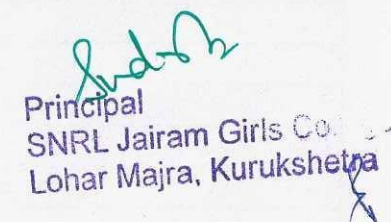 Principal
SNRL Jairam Girls Co
Lohar Majra, Kurukshetra